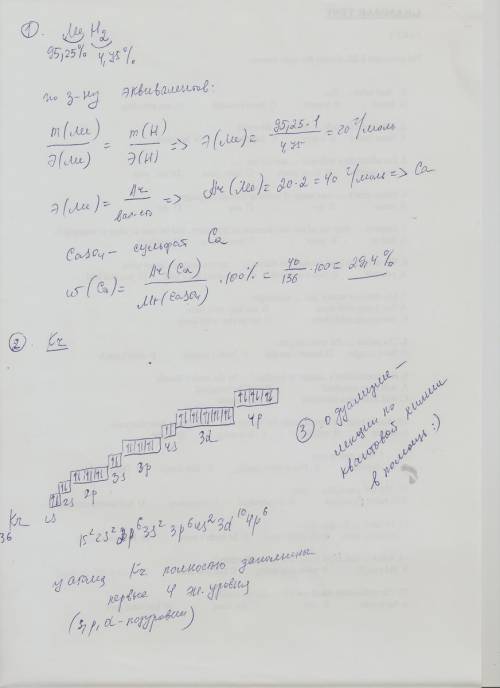 1. MeH2
95,25% 4,75%
по з-ну эквивалентов:
m(Me)/Э(Me) = m(H)/Э(H) => Э(Me) = 95,25·1/4,75 = 20 г/моль
Э(Me) = Ar/вал-сть => Ar(Me) = 20·2 = 40 г/моль => Ca
CaSO4 – сульфат Ca
w(Ca) = Ar(Ca)/Mr(CaSO4) ·100% = 40/136 ·100 = 29,4%
2. Kr
1s 2s 2p 3s 3p 4s 3d 4p
3. о дуализме –
лекции по
квантовой химии
в помощь :)
Kr
36
1s² 2s² 2p⁶ 3s² 3p⁶ 4s² 3d¹⁰ 4p⁶
у атома Kr полностью заполнены
первые 4 эн. уровня
(s, p, d – подуровни)